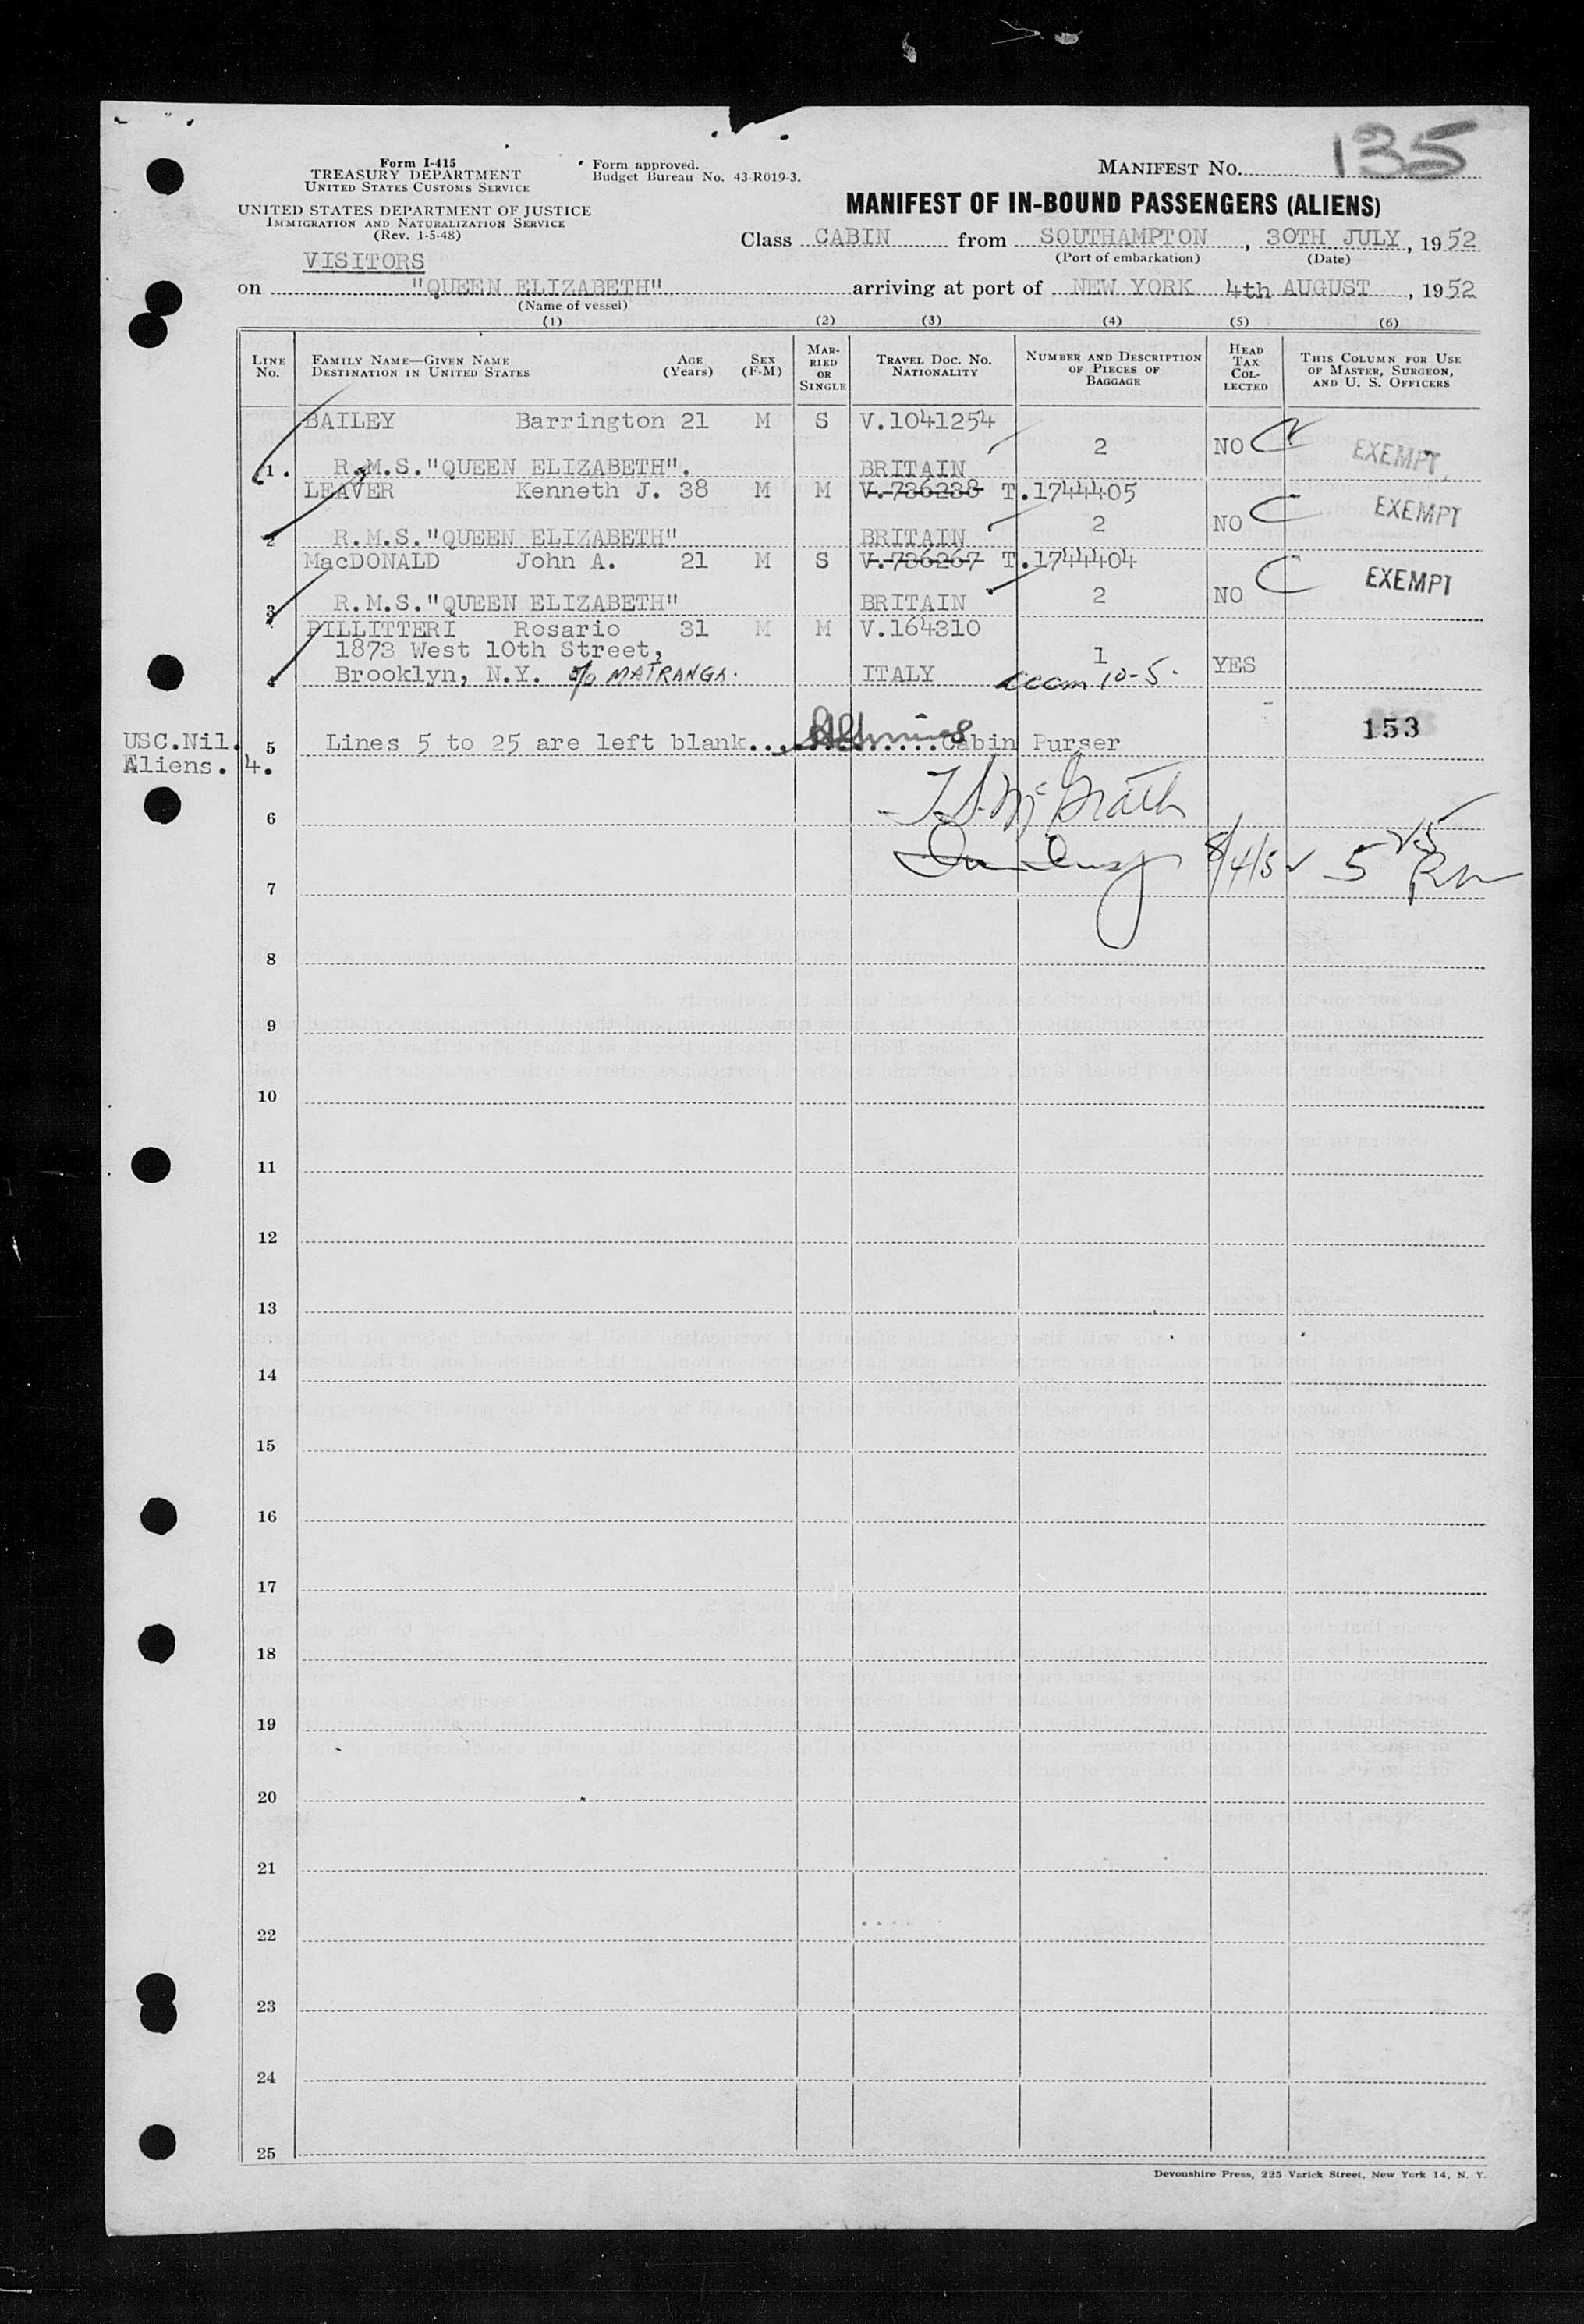 135
Form I-415
TREASURY DEPARTMENT
UNITED STATES CUSTOMS SERVICE
Form approved.
Budget Bureau No. 43-R019-3.
MANIFEST NO.
UNITED STATES DEPARTMENT OF JUSTICE
IMMIGRATION AND NATURALIZATION SERVICE
(Rev. 1-5-48)
MANIFEST OF IN-BOUND PASSENGERS (ALIENS)
Class CABIN from SOUTHAMPTON, 30TH JULY, 1952
(Port of embarkation) (Date)
VISITORS
on "QUEEN ELIZABETH" arriving at port of NEW YORK 4th AUGUST, 1952
(Name of vessel)
(1) (2) (3) (4) (5) (6)
LINE NO. FAMILY NAME—GIVEN NAME DESTINATION IN UNITED STATES AGE (Years) SEX (F-M) MARRIED OR SINGLE TRAVEL DOC. NO. NATIONALITY NUMBER AND DESCRIPTION OF PIECES OF BAGGAGE HEAD TAX COLLECTED THIS COLUMN FOR USE OF MASTER, SURGEON, AND U. S. OFFICERS
BAILEY Barrington 21 M S V.1041254
2 NO EXEMPT
1. R.M.S."QUEEN ELIZABETH". BRITAIN
LEAVER Kenneth J. 38 M M V.736238 T.1744405
2 NO EXEMPT
2 R.M.S."QUEEN ELIZABETH" BRITAIN
MacDONALD John A. 21 M S V.736267 T.1744404
2 NO EXEMPT
3 R.M.S."QUEEN ELIZABETH" BRITAIN
PILLITTERI Rosario 31 M M V.164310
1873 West 10th Street,
1 YES
4 Brooklyn, N.Y. c/o MATRANGA. ITALY 10-5.
153
USC.Nil. 5 Lines 5 to 25 are left blank.............Cabin Purser
Aliens. 4.
T.S. McGrath
6
8/4/52 5
7
8
9
10
11
12
13
14
15
16
17
18
19
20
21
22
23
24
25
Devonshire Press, 225 Varick Street, New York 14, N. Y.